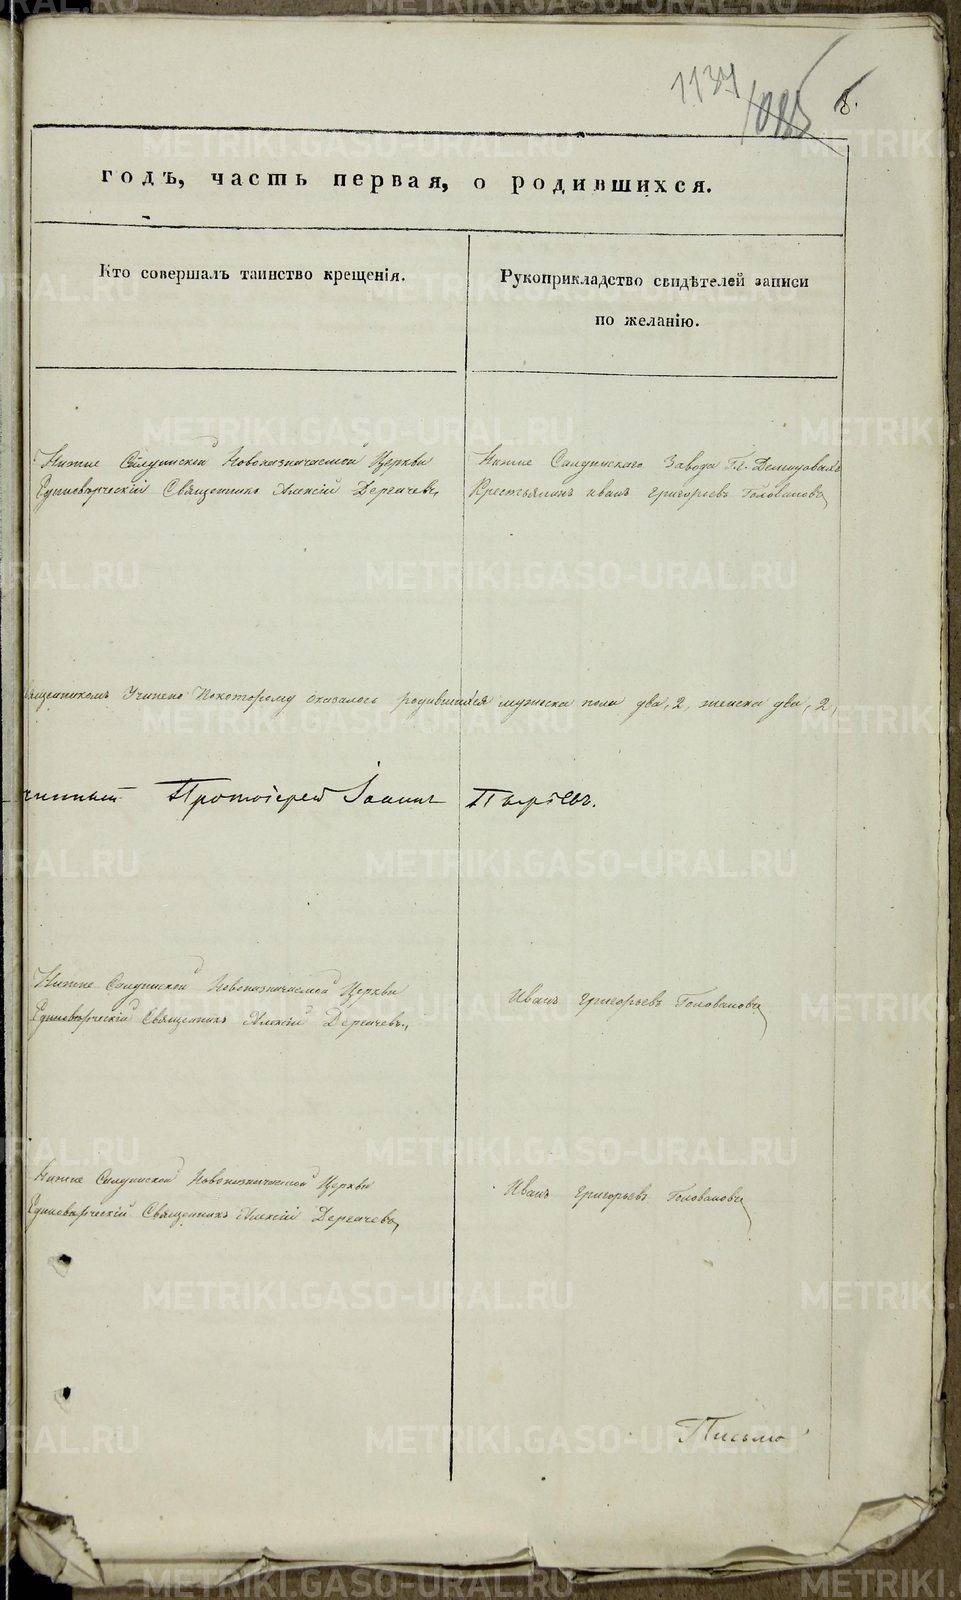 1137
1085
8.
годъ, часть первая, о родившихся.
Кто совершалъ таинство крещенія.
Рукоприкладство свидѣтелей записи
по желанію.
Нижне Салдинской Новоназначаемой Церкви
Единовѣрческій Священникъ Алексій Дергачевъ,
Нижне Салдинскаго Завода Гг. Демидовыхъ
Крестьянинъ Иванъ Григорьевъ Головановъ
Священникомъ Учинено Покоторому оказалось родившихся мужеска пола два, 2, женска два, 2,
Протоіерей Іоаннъ Пырьевъ.
Нижне Салдинской Новоназначаемой Церкви
Единовѣрческій Священникъ Алексій Дергачевъ,
Иванъ Григорьевъ Головановъ
Нижне Салдинской Новоназначаемой Церкви
Единовѣрческій Священникъ Алексій Дергачевъ,
Иванъ Григорьевъ Головановъ
Письмо
METRIKI.GASO-URAL.RU